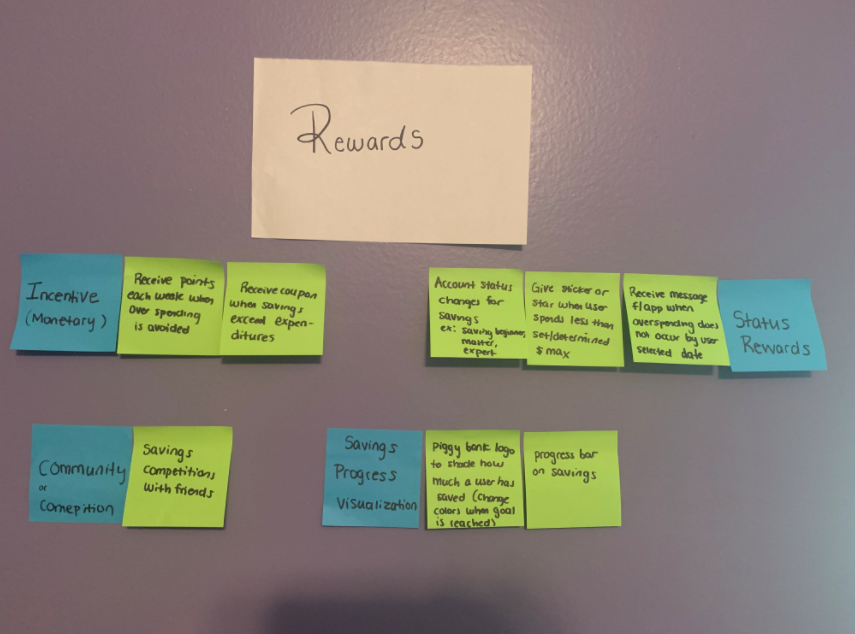 Rewards
Incentive
(Monetary)
Receive points
each week when
over spending
is avoided
Receive coupon
when savings
exceed expen-
ditures
Account status
changes for
savings
ex: saving beginner,
master,
expert
Give sticker or
star when user
spends less than
set/determined
$ max
Receive message
f/app when
overspending does
not occur by user
selected date
Status
Rewards
Community
or
Comepition
Savings
competitions
with friends
Savings
Progress
Visualization
piggy bank logo
to shade how
much a user has
saved (change
colors when goal
is reached)
progress bar
on savings